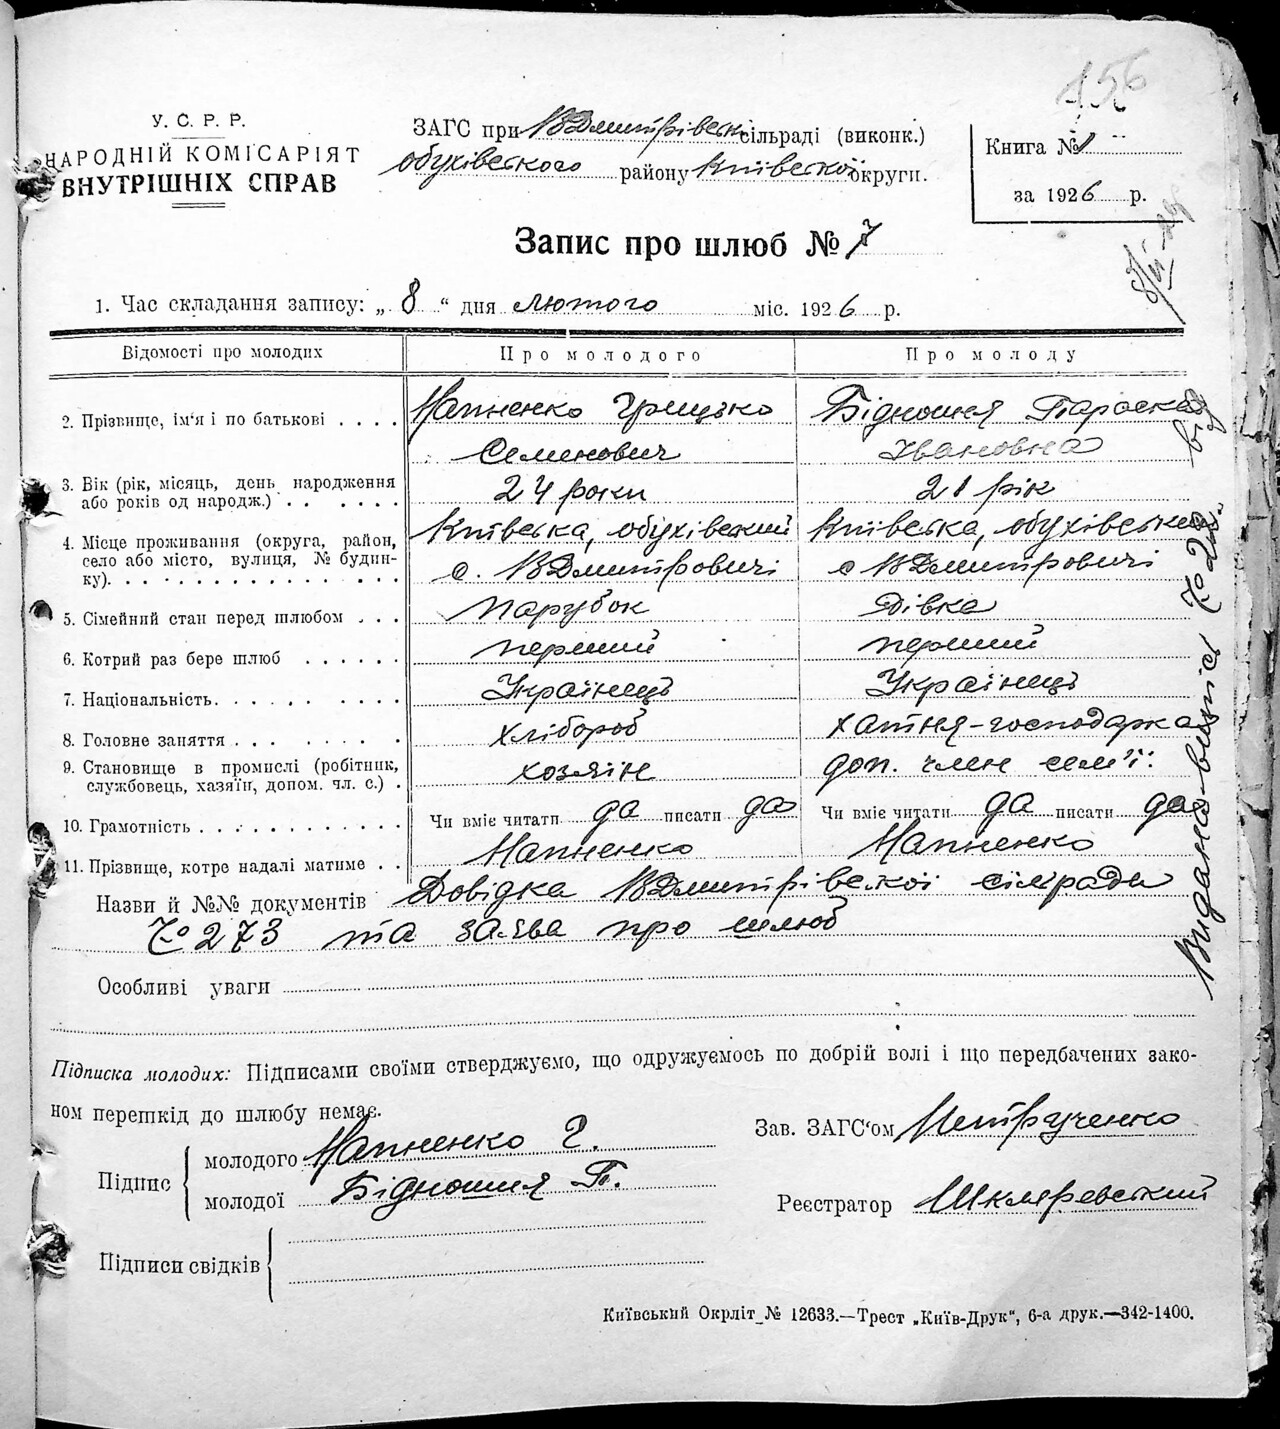 156
У. С. Р. Р.
НАРОДНІЙ КОМІСАРІЯТ
ВНУТРІШНІХ СПРАВ
ЗАГС при ВДмитрівськ сільраді (виконк.)
Обухівського району Київської округи.
Книга № 1
за 1926 р.
Запис про шлюб № 7
1. Час складання запису: „ 8 “ дня лютого міс. 1926 р.
Відомості про молодих Про молодого Про молоду
2. Прізвище, ім'я і по батькові . . . . Напненко Грицько Бідношия Параска
Семенович Івановна
3. Вік (рік, місяць, день народження або років од народж.) . . . . . . 24 роки 21 рік
4. Місце проживання (округа, район, село або місто, вулиця, № будинку). Київська, обухівський Київська, обухівський
с. ВДмитровичі с ВДмитровичі
5. Сімейний стан перед шлюбом . . . парубок дівка
6. Котрий раз бере шлюб . . . . . . перший перший
7. Національність. . . . . . . . . . Українець Українець
8. Головне заняття . . . . . . . . хлібороб хатня-господарка
9. Становище в промислі (робітник, службовець, хазяїн, допом. чл. с.) . хозяін доп. член сем'ї.
10. Грамотність . . . . . . . . . . . Чи вміє читати да писати да Чи вміє читати да писати да
11. Прізвище, котре надалі матиме . . Напненко Напненко
Назви й №№ документів Довідка ВДмитрівської сілради
№ 273 та заява про шлюб
Особливі уваги
Підписка молодих: Підписами своїми стверджуємо, що одружуємось по добрій волі і що передбачених зако-
ном перешкід до шлюбу немає.
Підпис
молодого Напненко Г.
молодої Бідношия П.
Підписи свідків
Зав. ЗАГС'ом Петрученко
Реєстратор Шкляревський
Київський Окрліт № 12633.—Трест „Київ-Друк“, 6-а друк.—342-1400.
Видана випіс № 2